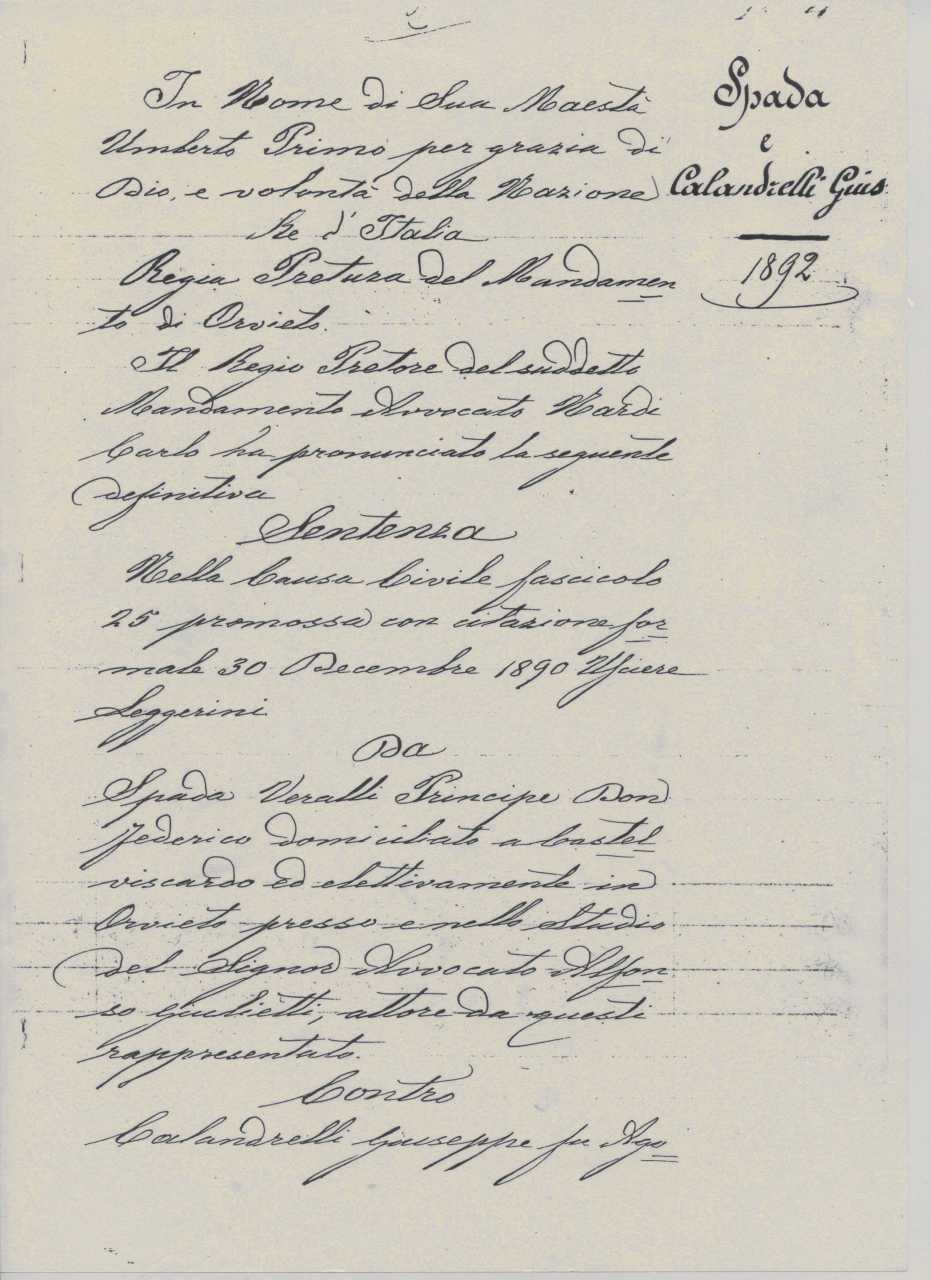 In Nome di Sua Maestà
Umberto Primo per grazia di
Dio, e volontà della Nazione
Re d'Italia
Regia Pretura del Mandamen
to di Orvieto.
Il Regio Pretore del suddetto
Mandamento Avvocato Nardi
Carlo ha pronunciato la seguente
definitiva
Sentenza
Nella Causa Civile fascicolo
25 promossa con citazione for
male 30 Decembre 1890 Usciere
Seggerini
Da
Spada Veralli Principe Don
Federico domiciliato a Castel
viscardo ed elettivamente in
Orvieto presso e nello Studio
del Signor Avvocato Alfon
so Giulietti, attore da questi
rappresentato.
Contro
Calandrelli Giuseppe fu Ago
Spada
e
Calandrelli Gius.
1892